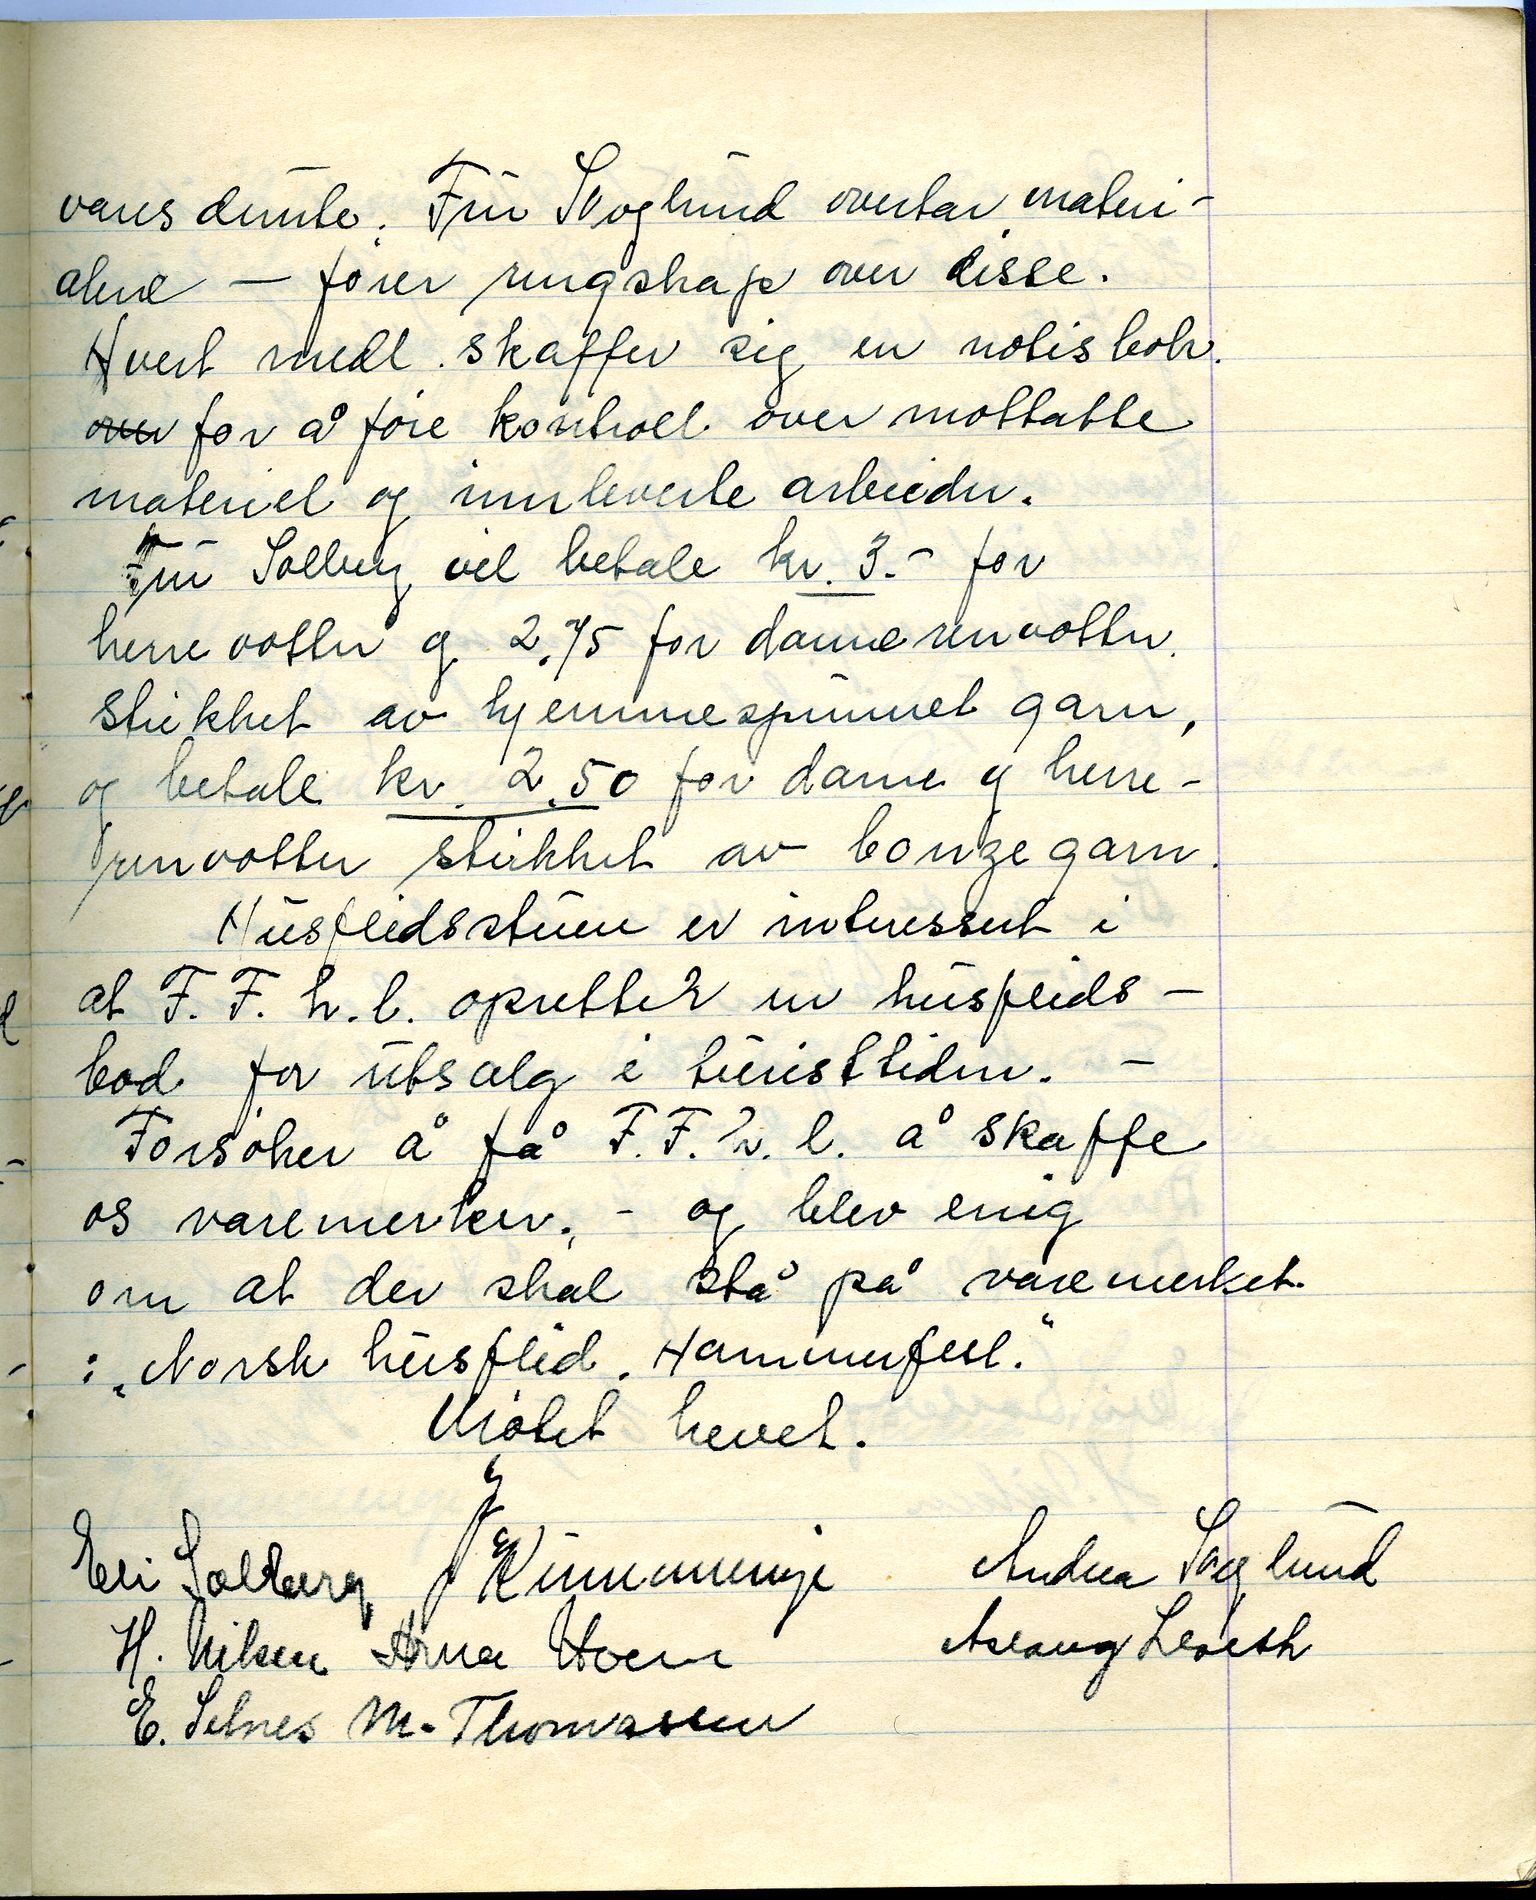 varesdunte. Frü Skoglünd overtar materi-
alene — fører rengskap over disse.
Hvert medl. skaffer sig en notisbok.
over for å føre kontroll over mottatte
materiel og innleverte arbeider.
Frü Solberg vil betale kr. 3.- for
herrevotter og 2.75 for damerenvotter.
strikket av hjemmespünnet garn,
og betale kr. 2.50 for dame og herre-
renvotter strikket av bonzegarn.
Hüsflidsstüen er interessert i
at F. F. h. l. opretter en hüsflids-
bod for ütsalg i türisttiden. —
Forsøker å få F. F. h. l. å skaffe
os varemerker. - og blev enig
om at der skal stå på varemerket
: „Norsk hüsflid. Hammerfest."
Møtet hevet.
Eli Solberg Andrea Skoglünd
H. Nilsen Arna Hoem Aslaug
E. Selnes M. Thomassen